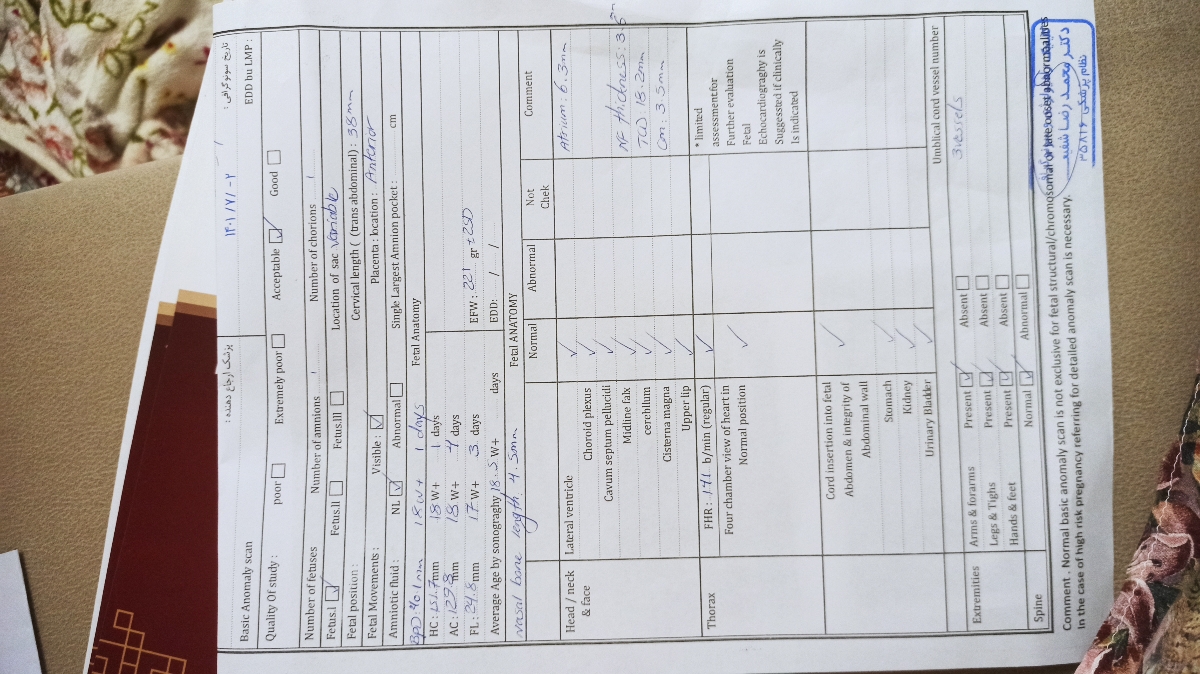 پزشک ارجاع دهنده : تاریخ سونوگرافی :
۱۴۰۱/۷/۰۲
Basic Anomaly scan EDD bu LMP :
Quality Of study : poor Extremely poor Acceptable Good
Number of fetuses Number of amnions Number of chorions
Fetus.I Fetus.II Fetus.III Location of sac
Fetal position : variable Cervical length ( (trans abdominal) : 38mm
Fetal Movements : Visible : Placenta : location : Anterior
Amniotic fluid : NL Abnormal Single Largest Amnion pocket : cm
BPD: 40.1mm 18W+ 1 days Fetal Anatomy
HC: 151.7mm 18 W+ 1 days
AC: 129.8 mm 18 W+ 4 days
FL: 24.8 mm 17 W+ 3 days EFW: 221 gr ±25D
Average Age by sonograghy 18.5 W+ days EDD: / /
nasal bone length: 4.5mm Fetal ANATOMY
Normal Abnormal Not Chek Comment
Head / neck & face
Lateral ventricle Atrium: 6.3mm
Choroid plexus
Cavum septum pellucidi
Midline falx NF thickness: 3.5m
cerebllum TCD 18.2mm
Cisterna magna Cm: 3.5mm
Upper lip
Thorax
FHR : 141 b/min (regular) * limited
Four chamber view of heart in
Normal position
assessmentfor
Further evaluation
Fetal
Echocardiograghy is
Suggessted if clinically
Is indicated
Cord insertion into fetal
Abdomen & integrity of
Abdominal wall
Stomach
Kidney
Urinary Bladder
Umblical cord vessel number
Extremities
Arms & forarms Present Absent 3vessels
Legs & Tighs Present Absent
Hands & feet Present Absent
Spine Normal Abnormal
Comment . Normal basic anomaly scan is not exclusive for fetal structural/chromosomal
in the case of high risk pregnancy referring for detailed anomaly scan is necessary.
دکتر محمد رضا شفیع
نظام پزشکی ۳۵۸۲۶